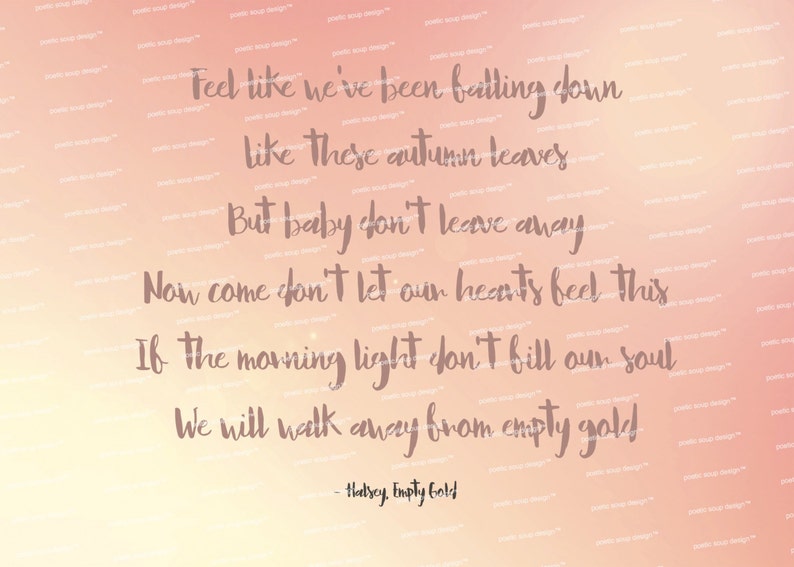 Feel like we've been falling down
like these autumn leaves
But baby don't leave away
Now come don't let our hearts feel this
If the morning light don't fill our soul
We will walk away from empty gold
- Halsey, Empty Gold
poetic soup design™